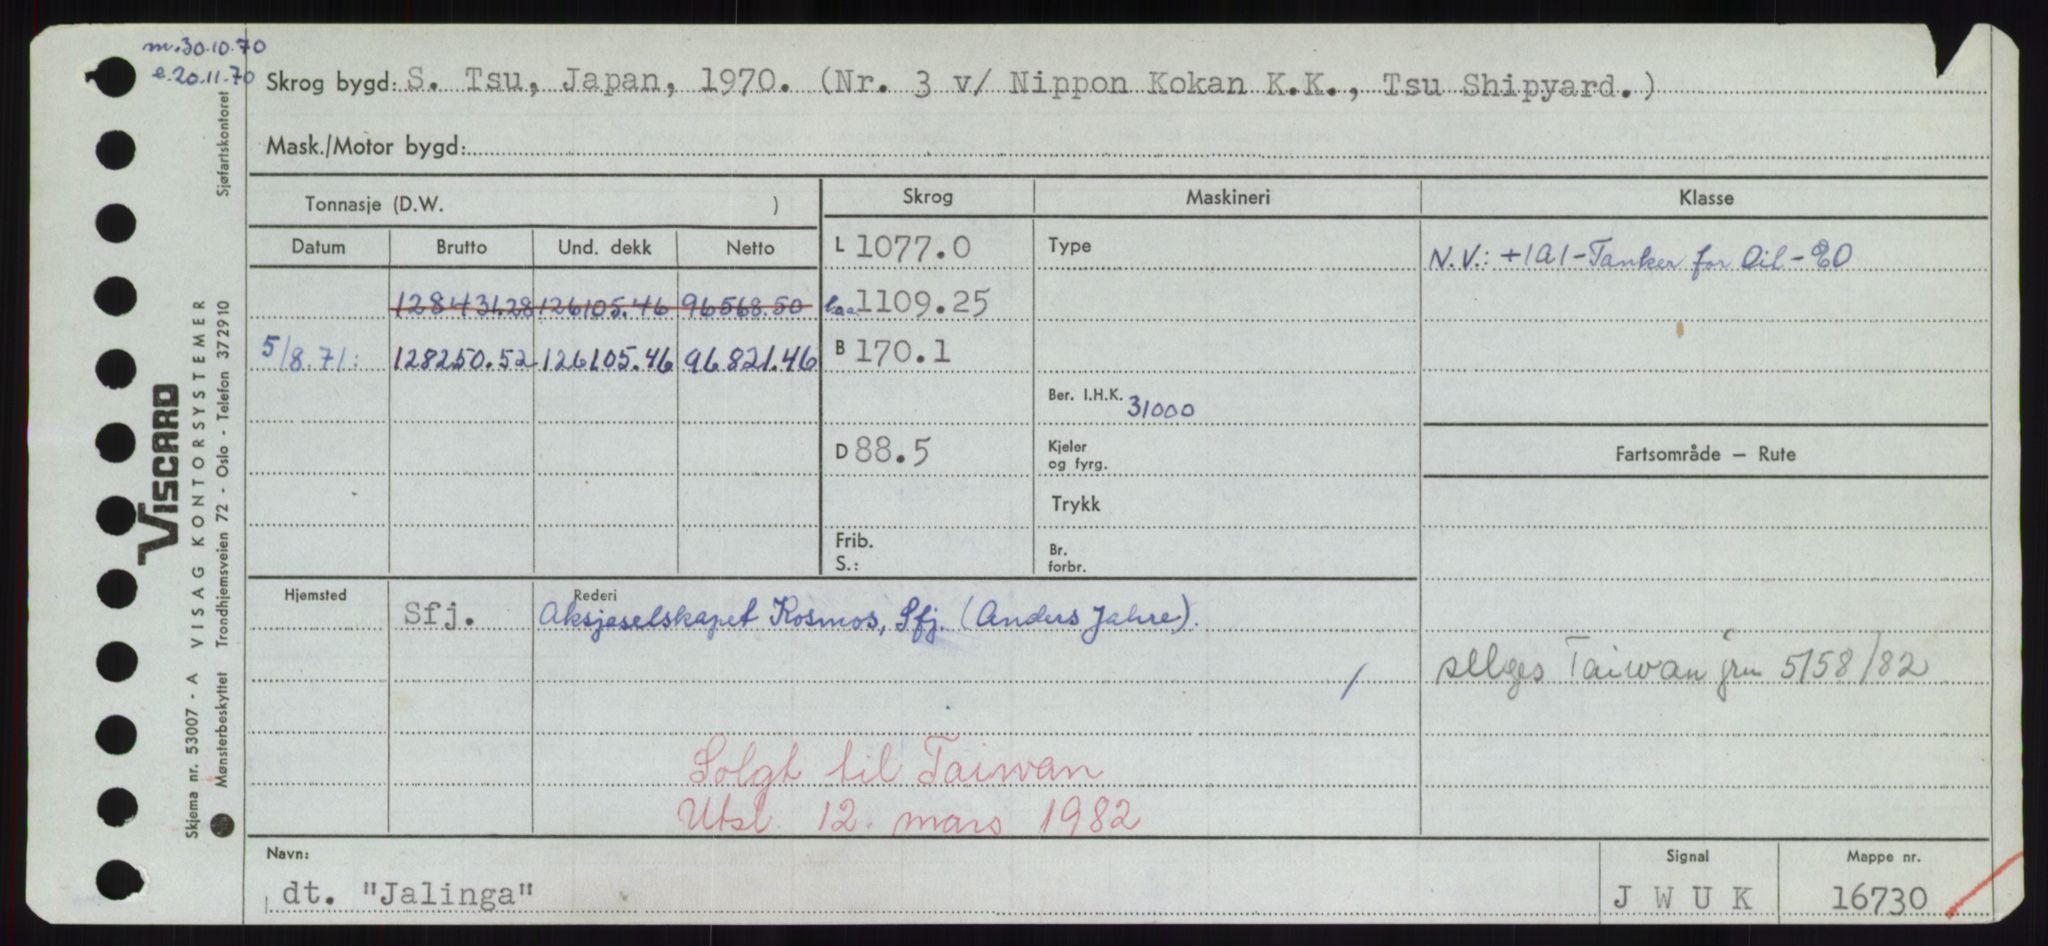 m. 30.10.70
e. 20.11.70
Skrog bygd: S. Tsu, Japan, 1970. (Nr. 3 v/ Nippon Kokan K.K., Tsu Shipyard.)
Mask./Motor bygd:
Tonnasje (D.W. )
Skrog Maskineri Klasse
Datum Brutto Und. dekk Netto
L 1077.0 Type N.V.: +1A1-Tanker for Oil-EO
128431.28 126105.46 96568.50 Loa 1109.25
5/8.71: 128250.52 126105.46 96821.46 B 170.1
Ber. I.H.K. 31000
D 88.5 Kjeler og fyrg. Fartsområde – Rute
Trykk
Frib.
S.:
Br. forbr.
Hjemsted Rederi
Sfj. Aksjeselskapet Kosmos, Sfj. (Anders Jahre).
selges Taiwan 5158/82
Solgt til Taiwan
Utsl. 12. mars 1982
Navn: Signal Mappe nr.
dt. "Jalinga" J W U K 16730
VISCARD
VISAG KONTORSYSTEMER
Skjema nr. 53007 - A
Mønsterbeskyttet Trondhjemsveien 72 - Oslo - Telefon 372910
Sjøfartskontoret